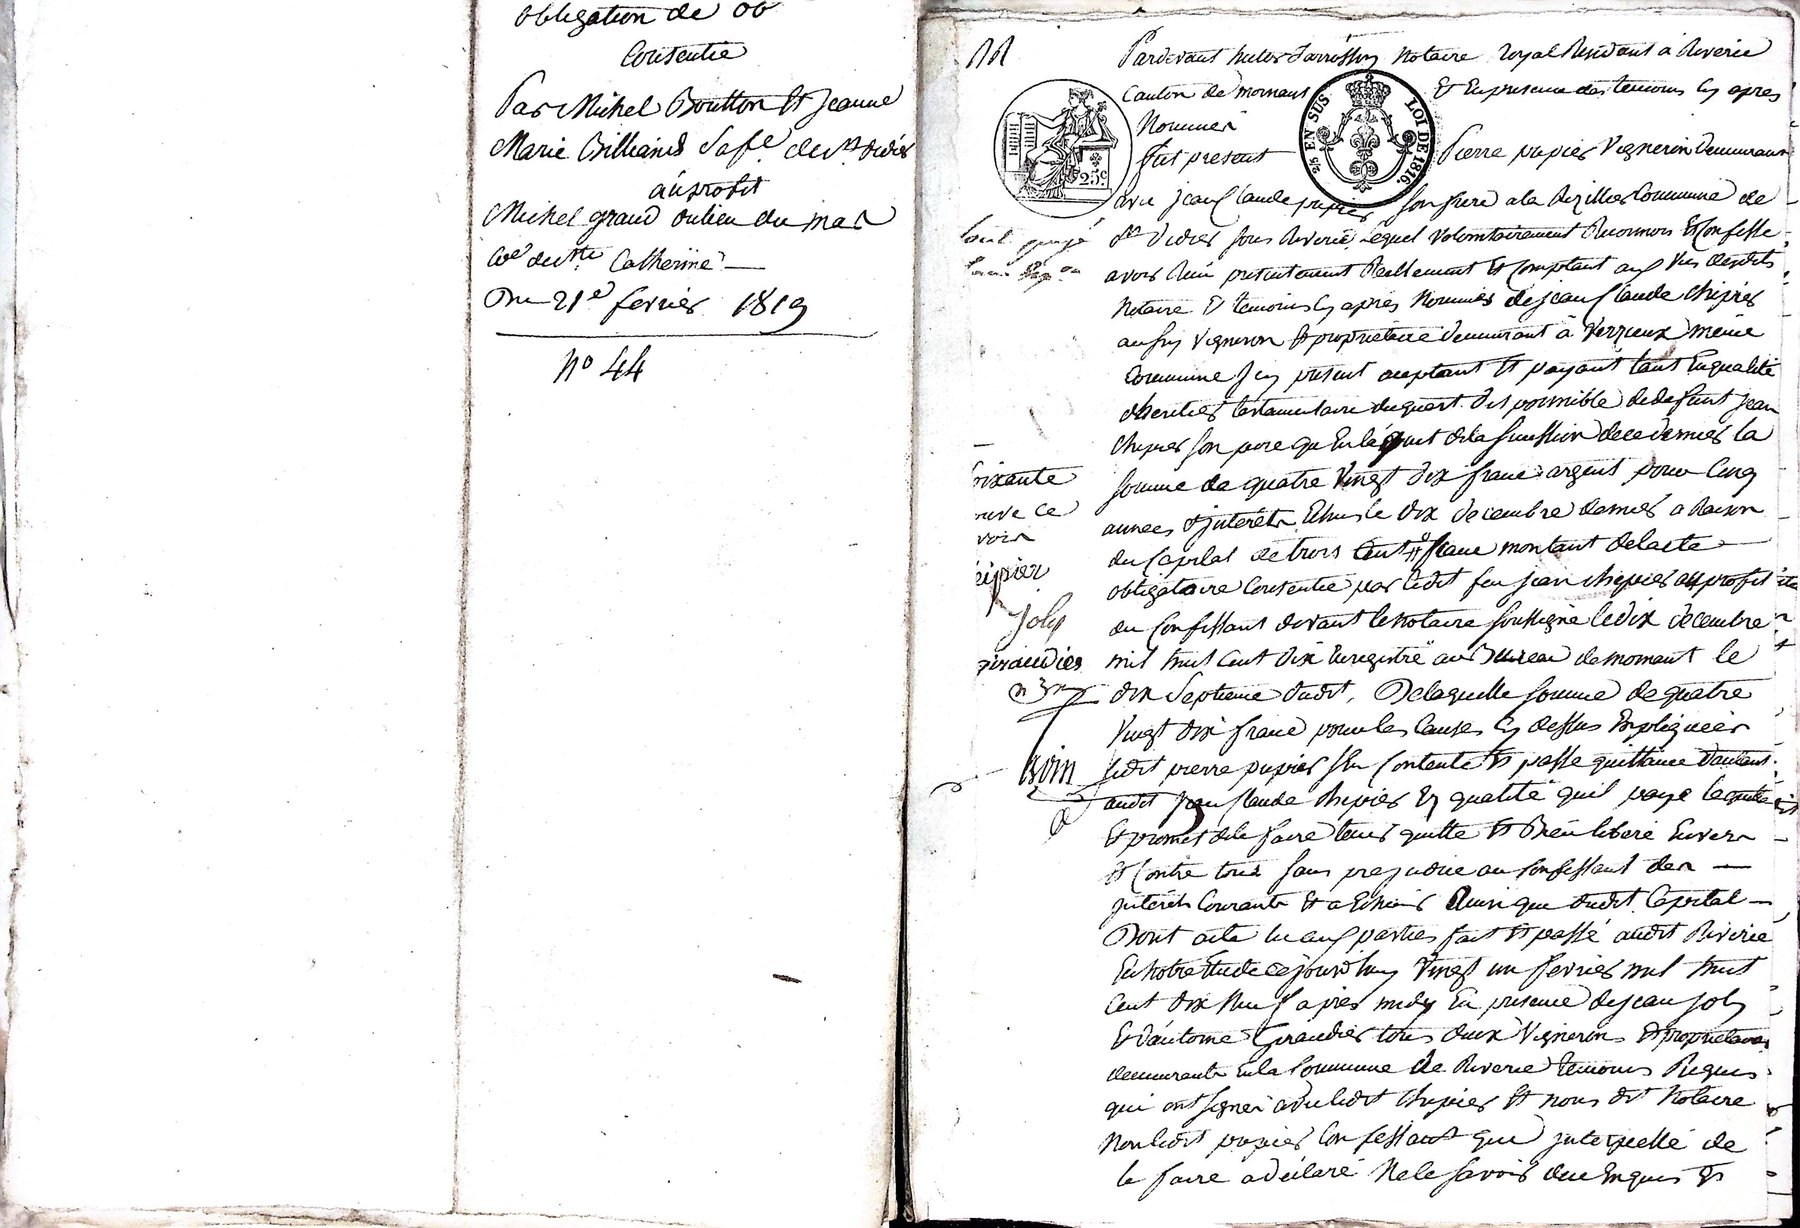 obligation de 
Consentie
Par Michel Boutton Et Jeanne
Marie Billiand Safe de st didier
au profit
Michel grand du lieu du mas
Coe de ste Catherine
Du 21e fevrier 1819
No 44
Pardevant notaire royal Residant à Riverie
Canton de mornant Et En presence des temoins cy apres
Nommés
fut present Pierre pupier Vigneron demeurant
2/5 EN SUS LOI DE 1816.
25c
avec jean Claude pupier son frere a la Commune de
st Didier sous Riverie Lequel volontairement Reconnois & Confesse
avoir Recu presentement Reellement Et Comptant aux vus desdits
Notaire & temoins cy apres Nommés de jean Claude chipier
aussy vigneron & proprietaire demeurant à Verzieux même
Commune Icy present acceptant Et payant tant En qualité
d'heritier testamentaire du quart disponible de defunt jean
chipier son pere qu En l'acquit de la succession de ce dernier la
somme de quatre Vingt dix franc argent pour Cinq
années d'jnterêts Echus le dix decembre dernier a Raison
du Capital de trois Cent franc montant de l'acte
obligatoire Consentie par ledit feu jean chipier au profit
du Confessant devant le Notaire soussigné le dix decembre
mil huit Cent dix Enregistré au Bureau de mornant le
dix Septieme dudit. De laquelle somme de quatre
Vingt dix franc pour les Causes cy dessus Expliquées
ledit pierre pupier s'En Contente & passe quittance d'autant
audit jean Claude chipier En qualité qu'il paye
Et promet de le faire tenir quitte & Bien liberé Envers
& Contre tous sans prejudice au Confessant des
jnterêts Courants Et a Echoir Ainsi que dudit Capital
Dont acte lu aux parties fait & passé audit Riverie
En Notre Etude ce jourd'huy Vingt un fevrier mil huit
Cent dix Neuf apres midy En presence de jean joly
Et d'antoine Giraudier tous deux Vignerons & proprietaires
demeurants En la Commune de Riverie temoins Requis
qui ont signé avec ledit chipier & nous dt Notaire
Non ledit pupier Confessant qui jnterpellé de
le faire a déclaré Ne le savoir de ce Enquis &
soixante
ce
joly
giraudier